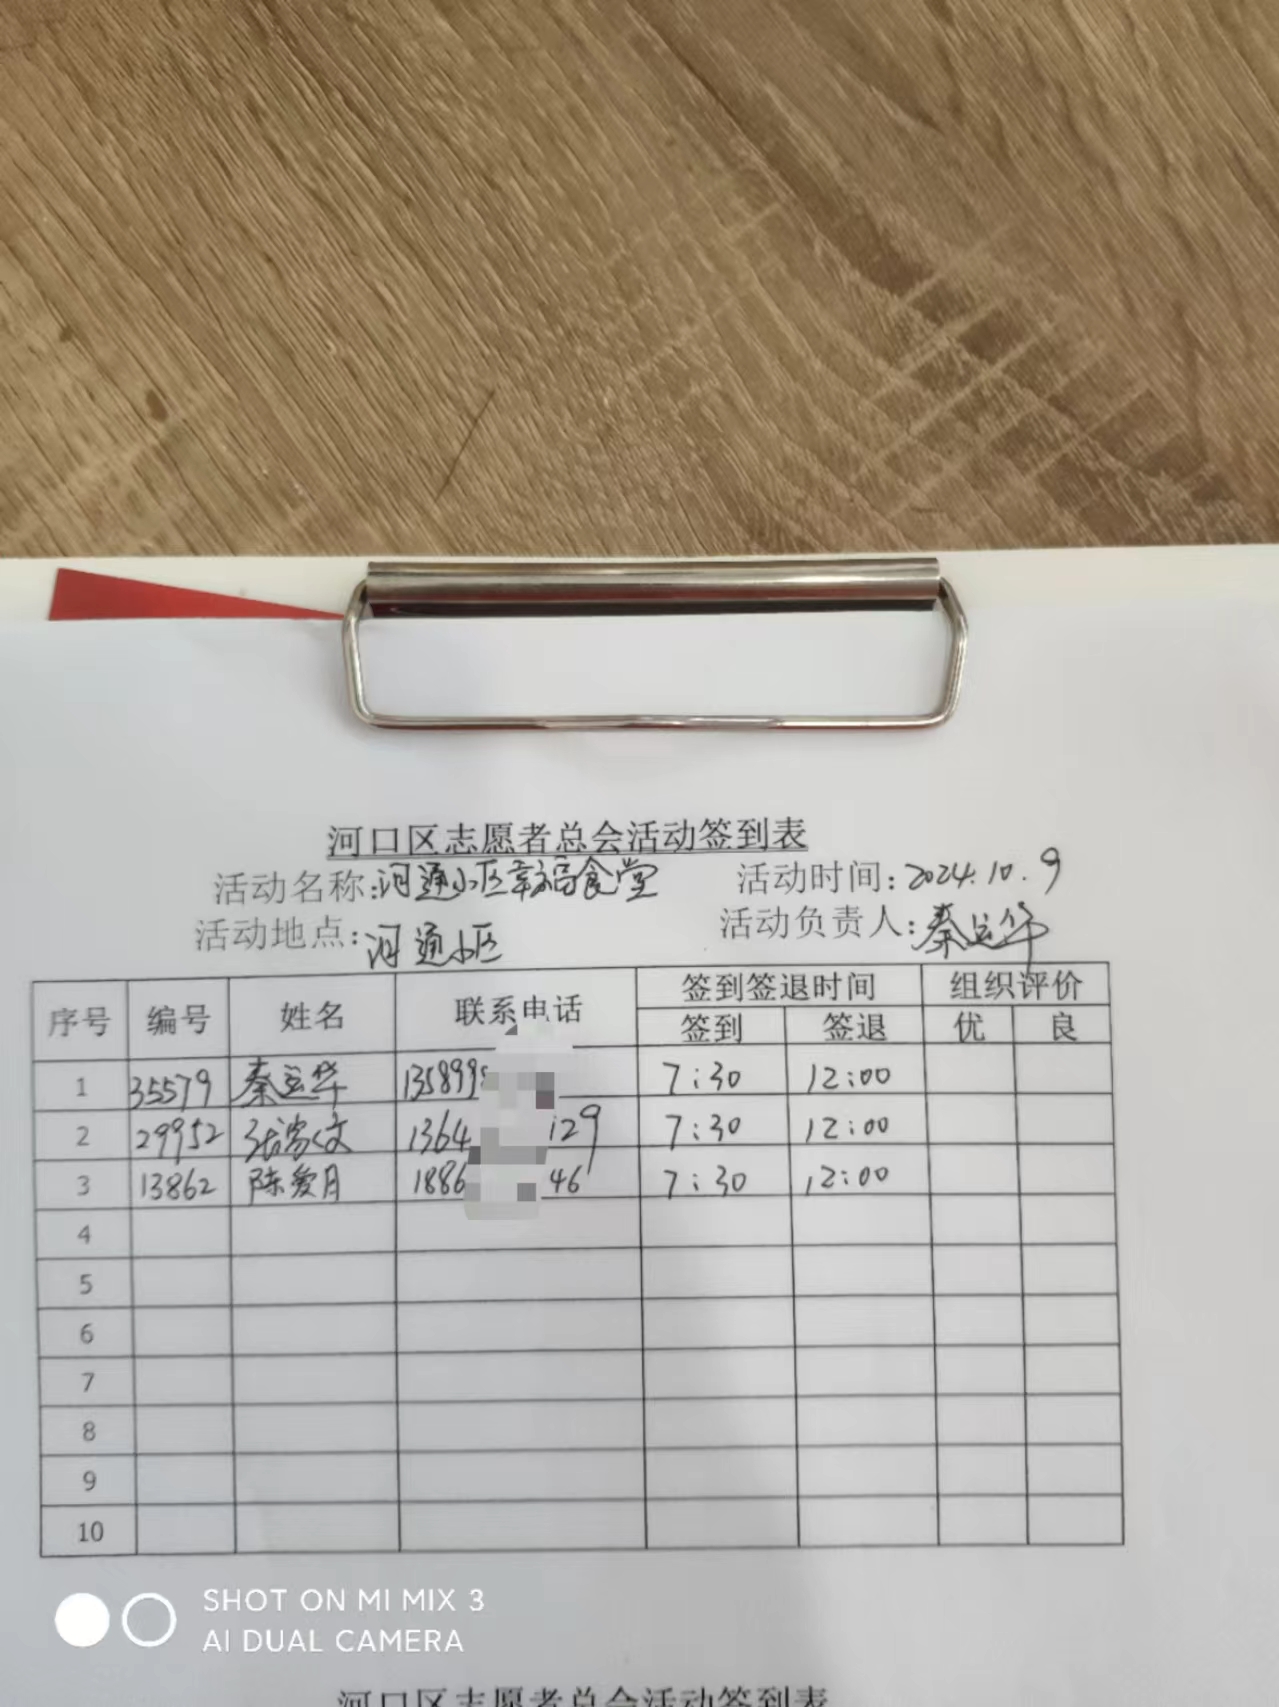 河口区志愿者总会活动签到表
活动名称:河通小区幸福食堂 活动时间:2024.10.9
活动地点:河通小区 活动负责人:秦运华
序号 编号 姓名 联系电话 签到签退时间 组织评价
签到 签退 优 良
1 35579 秦运华 135899 7:30 12:00
2 29952 张 文 1364 129 7:30 12:00
3 13862 陈爱月 1886 46 7:30 12:00
4
5
6
7
8
9
10
SHOT ON MI MIX 3
AI DUAL CAMERA
河口区志愿者总会活动签到表